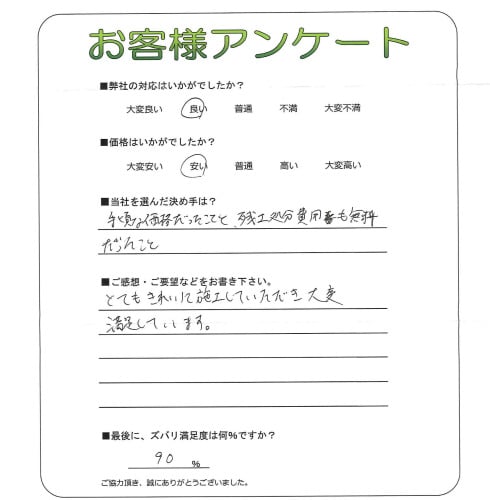 お客様アンケート
■弊社の対応はいかがでしたか?
大変良い 良い 普通 不満 大変不満
■価格はいかがでしたか?
大変安い 安い 普通 高い 大変高い
■当社を選んだ決め手は?
手頃な価格だったこと、残土処分費用も無料
だったこと
■ご感想・ご要望などをお書き下さい。
とてもきれいに施工していただき大変
満足しています。
■最後に、ズバリ満足度は何%ですか?
90 %
ご協力頂き、誠にありがとうございました。